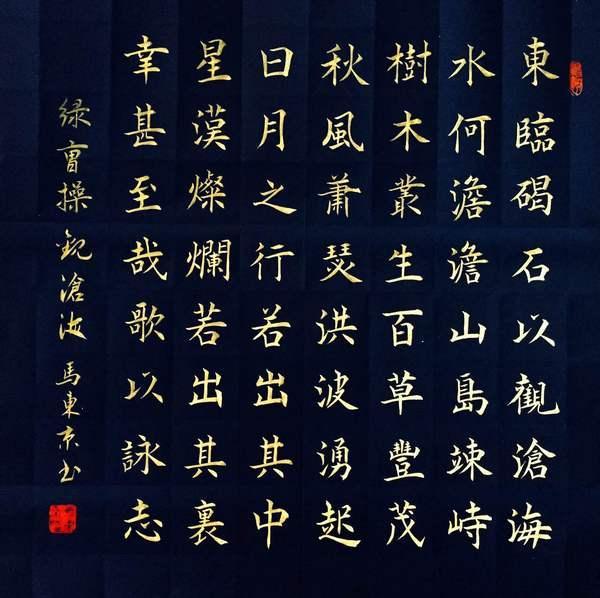 東臨碣石以觀滄海
水何澹澹山島竦峙
樹木叢生百草豐茂
秋風蕭瑟洪波湧起
日月之行若出其中
星漢燦爛若出其裏
幸甚至哉歌以詠志
緑曹操觀滄海馬東京书